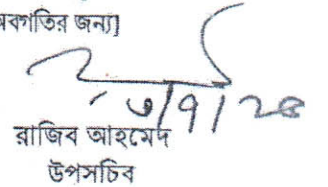 অবগতির জন্য]
৩/৭/২৫
রাজিব আহমেদ
উপসচিব